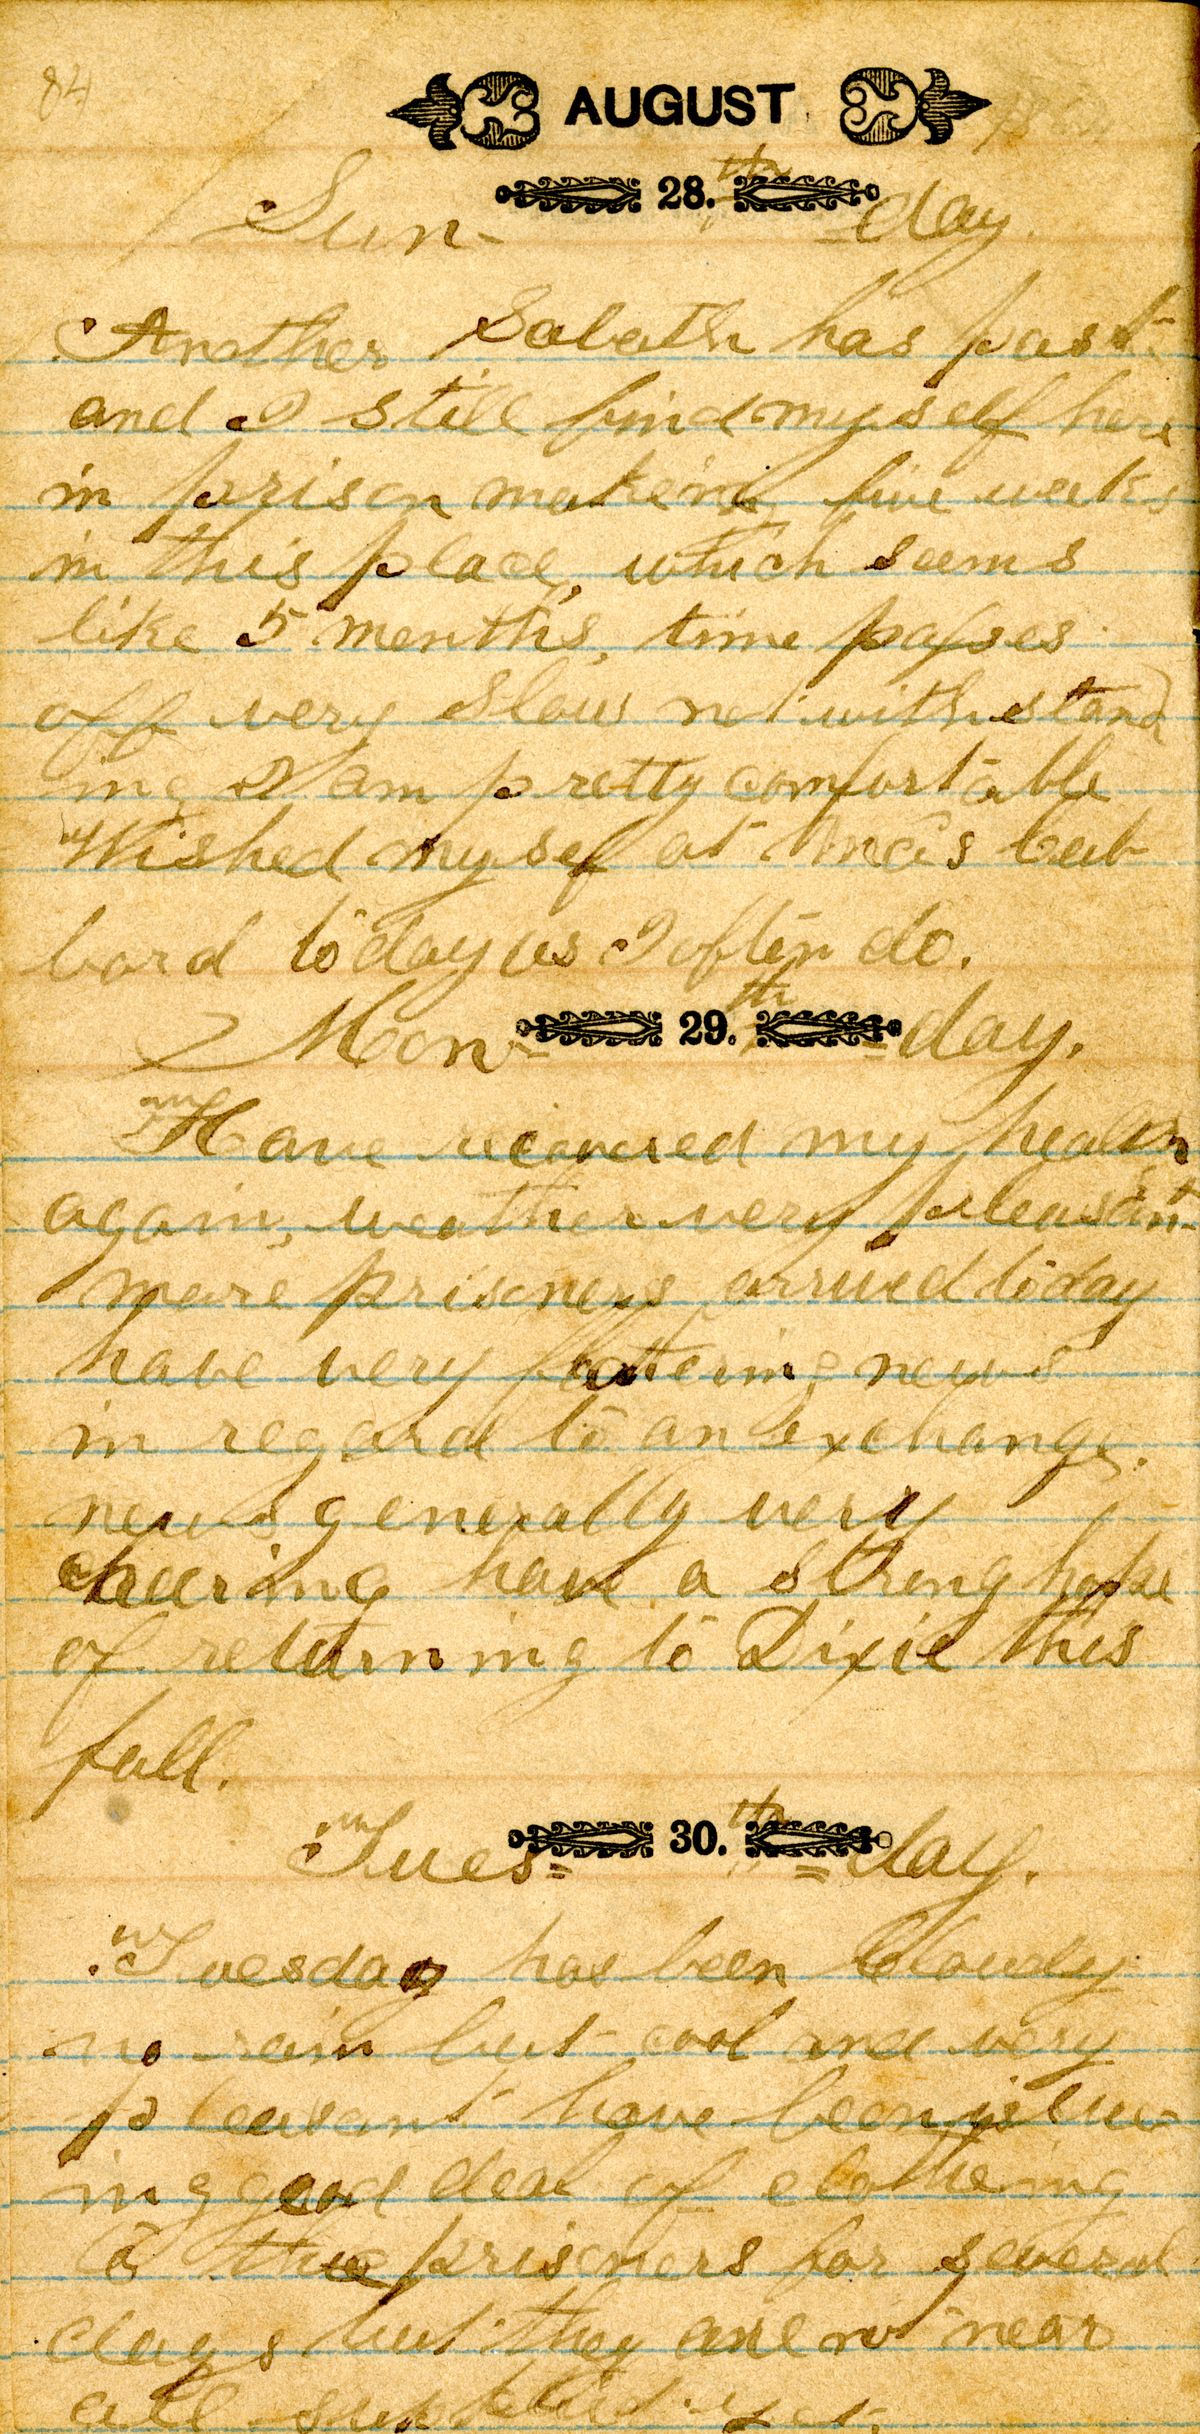 84
AUGUST
28.th
Sun- =day.
Another Sabath has past
and I still find myself here
in prison makeing five weeks
in this place, which seems
like 5 months, time passes
off very slow notwithstand
ing I am pretty comfortable
Wished mysef at Ma's cub
bord today as I often do.
29.th
Mon= =day.
Have recovered my health
again, weather very pleasant
more prisoners arrived today
have very flattering news
in regard to an exchange.
news generally very
cheering have a strong hope
of returning to Dixie this
fall.
30.th
Tues= =day.
Tuesday has been cloudy
no rain but cool and very
pleasant have been issue
ing good deal of clotheing
to the prisoners for several
days but they are not near
all supplied yet.